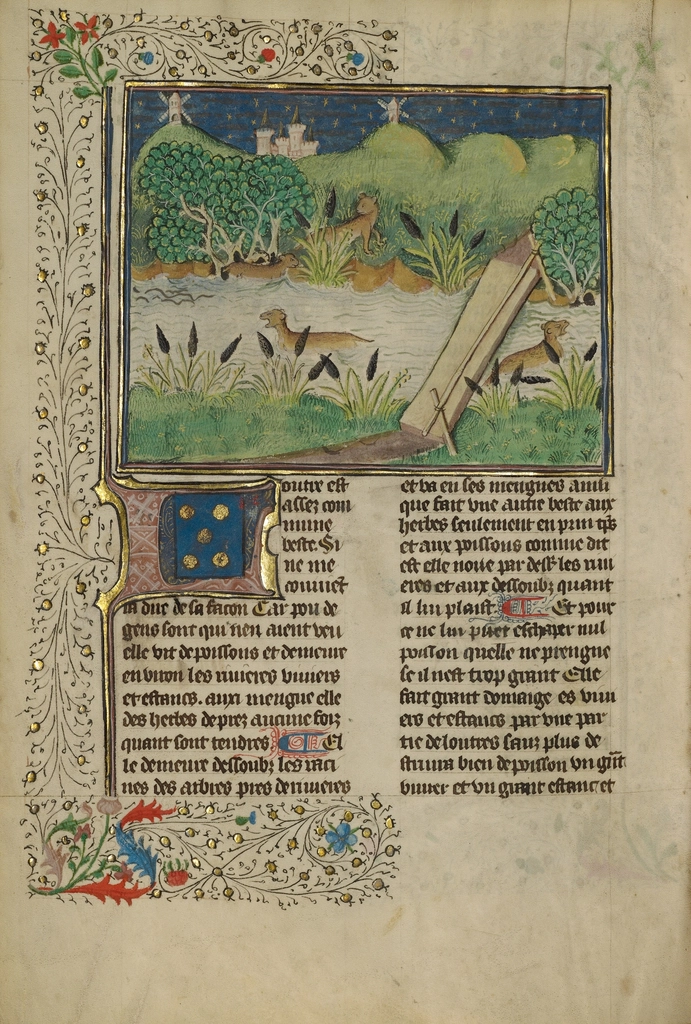 outre est
assez com
mune
beste. Si
ne me
couuiet
ia dire de sa facon Car pou de
gens sont qui nen aient veu
elle vit de poissons et demeure
enuiron les riuieres viuiers
et estancs. aussi mengue elle
des herbes de prez aucune foiz
quant sont tendres El
le demeure dessoubz les raci
nes des arbres pres de riuieres
et va en ses mengues ainsi
que fait vne autre beste aux
herbes seulement en prin tps
et aux poissons comme dit
est elle noue par dess les riui
eres et aux dessoubz quant
il lui plaist Et pour
ce ne lui puet eschaper nul
poisson quelle ne prengne
se il nest trop grant Elle
fait grant domaige es viui
ers et estancs par vne par
tie de loutres sanz plus de
struira bien de poisson vn gnt
viuier et vn grant estanc et